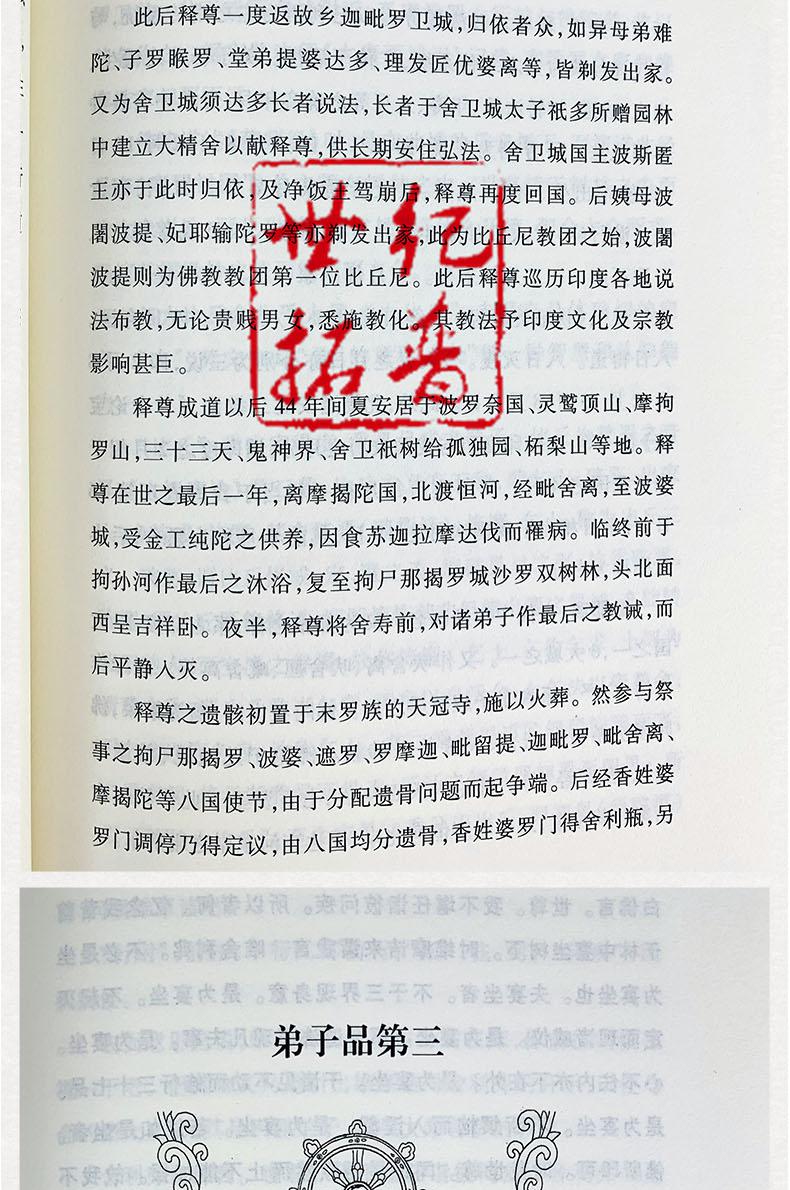 此后释尊一度返故乡迦毗罗卫城,归依者众,如异母弟难
陀、子罗睺罗、堂弟提婆达多、理发匠优婆离等,皆剃发出家。
又为舍卫城须达多长者说法,长者于舍卫城太子祇多所赠园林
中建立大精舍以献释尊,供长期安住弘法。舍卫城国主波斯匿
王亦于此时归依,及净饭王驾崩后,释尊再度回国。后姨母波
闍波提、妃耶输陀罗等亦剃发出家,此为比丘尼教团之始,波闍
波提则为佛教教团第一位比丘尼。此后释尊巡历印度各地说
法布教,无论贵贱男女,悉施教化。其教法予印度文化及宗教
影响甚巨。
世纪
拓普
释尊成道以后44年间夏安居于波罗奈国、灵鹫顶山、摩拘
罗山,三十三天、鬼神界、舍卫祇树给孤独园、柘梨山等地。释
尊在世之最后一年,离摩揭陀国,北渡恒河,经毗舍离,至波婆
城,受金工纯陀之供养,因食苏迦拉摩达伐而罹病。临终前于
拘孙河作最后之沐浴,复至拘尸那揭罗城沙罗双树林,头北面
西呈吉祥卧。夜半,释尊将舍寿前,对诸弟子作最后之教诫,而
后平静人灭。
释尊之遗骸初置于末罗族的天冠寺,施以火葬。然参与祭
事之拘尸那揭罗、波婆、遮罗、罗摩迦、毗留提、迦毗罗、毗舍离、
摩揭陀等八国使节,由于分配遗骨问题而起争端。后经香姓婆
罗门调停乃得定议,由八国均分遗骨,香姓婆罗门得舍利瓶,另
弟子品第三